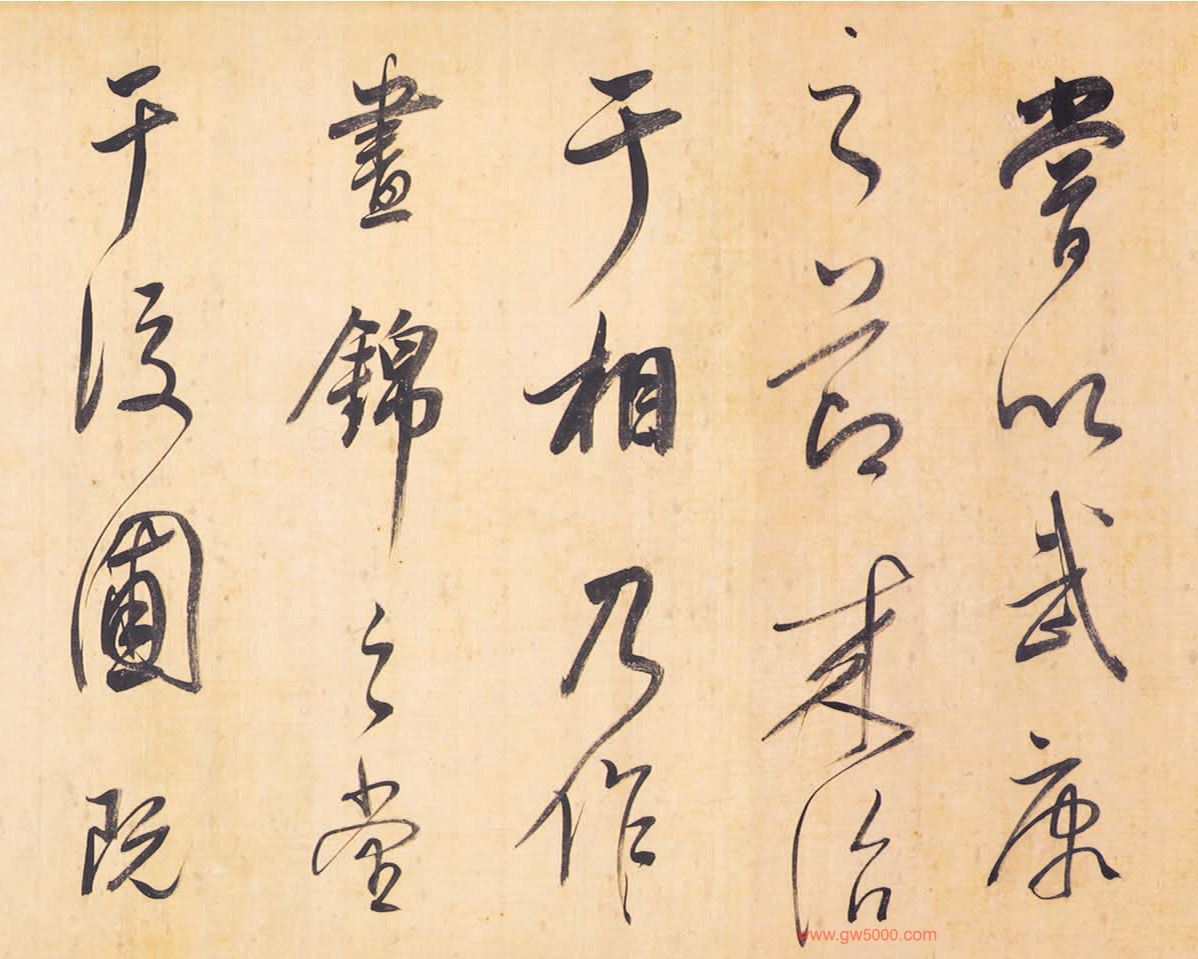 嘗以武康
之節來治
于相乃作
晝錦之堂
于後圃既
www.gw5000.com